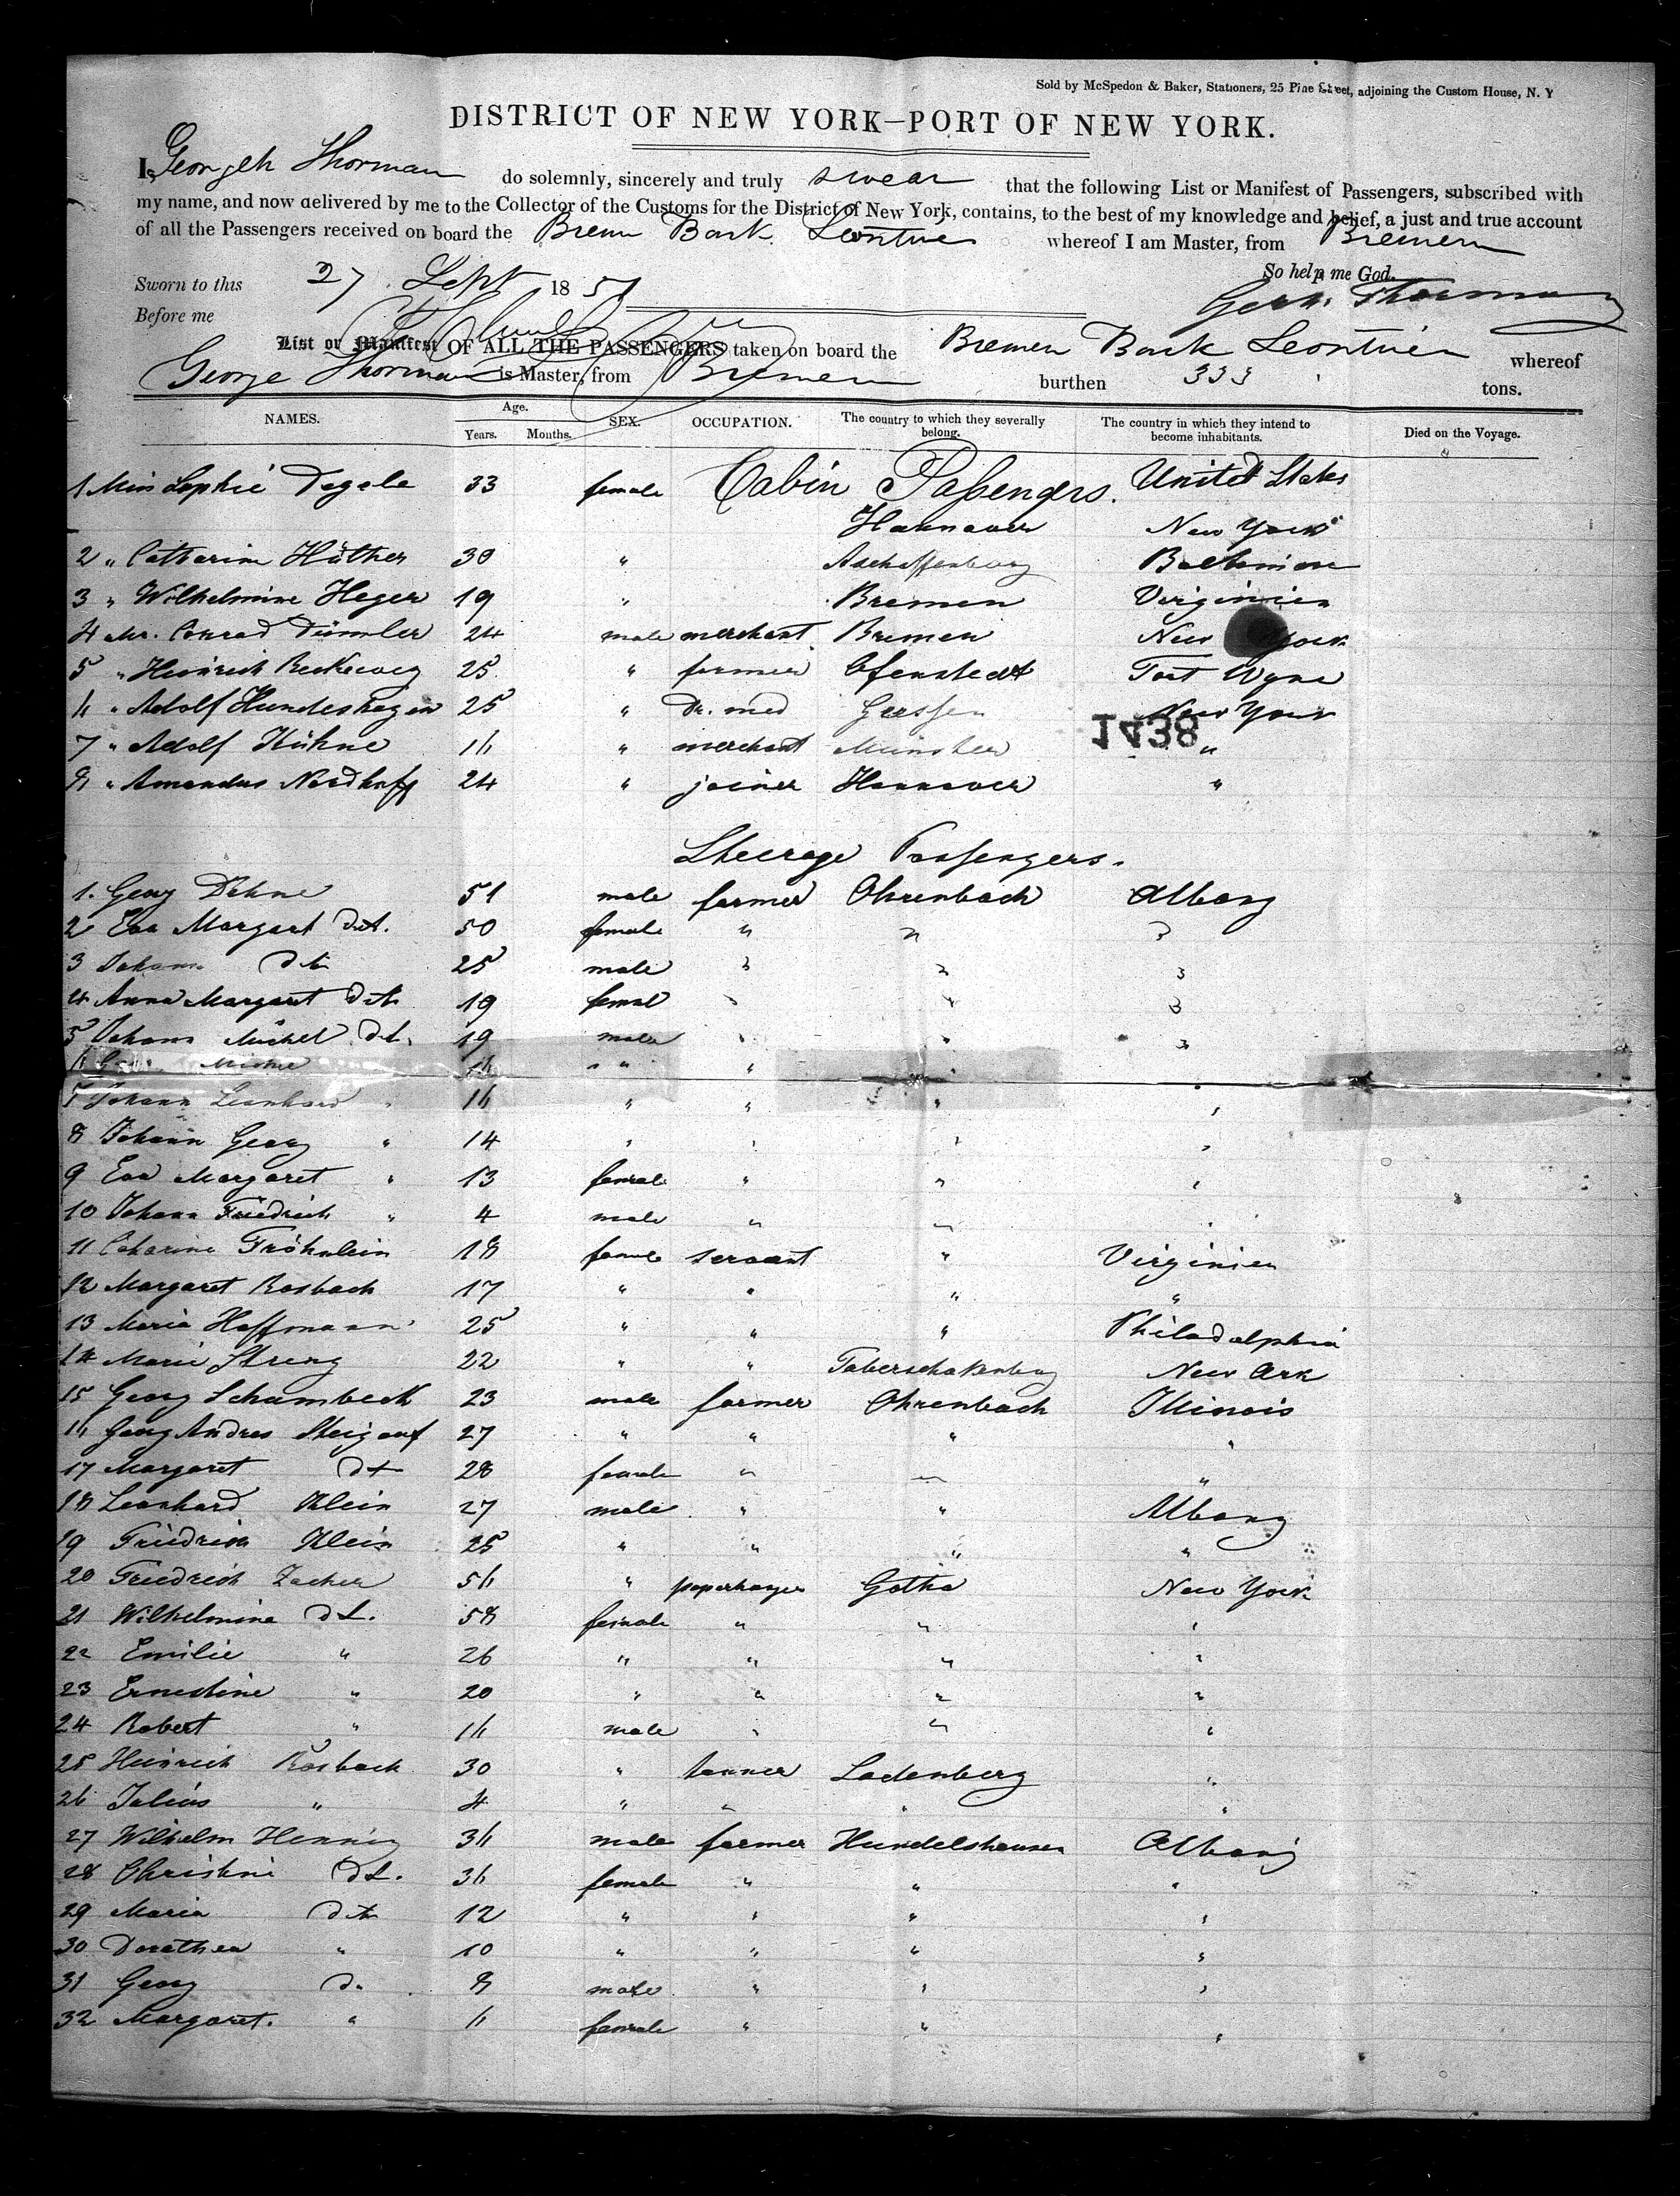 Sold by McSpedon & Baker, Stationers, 25 Pine Street, adjoining the Custom House, N. Y
DISTRICT OF NEW YORK—PORT OF NEW YORK.
I, Georgeh Thorman do solemnly, sincerely and truly swear that the following List or Manifest of Passengers, subscribed with
my name, and now delivered by me to the Collector of the Customs for the District of New York, contains, to the best of my knowledge and belief, a just and true account
of all the Passengers received on board the Bremen Bark Leontine whereof I am Master, from Bremen
So help me God.
Sworn to this 27 Sept 1851 Thorman
Before me
List or Manifest OF ALL THE PASSENGERS taken on board the Bremen Bark Leontine whereof
George Thorman is Master, from Bremen burthen 333 tons.
NAMES. Age. Years. Months. SEX. OCCUPATION. The country to which they severally belong. The country in which they intend to become inhabitants. Died on the Voyage.
Cabin Passengers. United States
1 Miss Sophie Degele 33 female Hannover New York
2 " Catharine Hüther 30 " Aschaffenburg Baltimore
3 " Wilhelmine Heger 19 " Bremen Virginien
4 Mr. Conrad Dümler 24 male merchant Bremen New York
5 " Heinrich Reckeweg 25 " farmer Ofenstedt Fort Wyne
6 " Adolf Hundeshagen 25 " Dr. med Giessen New York
1438
7 " Adolf Kühne 16 " merchant Münster "
8 " Amandus Nordhoff 24 " joiner Hannover "
Steerage Passengers.
1. Georg Dehne 51 male farmer Ohrenbach Albany
2 Eva Margaret dit. 50 female " " "
3 Johann dit 25 male " " "
4 Anna Margaret dit 19 femal " " "
5 Johann Michel dit. 19 male " " "
6 Michel 16 " " "
7 Johann Leonhard " 16 " " " "
8 Johann Georg " 14 " " " "
9 Eva Margaret " 13 female " " "
10 Johann Friedrich " 4 male " " "
11 Catharine Fröhnlein 18 female servant " Virginien
12 Margaret Rosbach 17 " " " "
13 Maria Hoffmann 25 " " " Philadalphia
14 Marie Streng 22 " " New Ark
15 Georg Schambeck 23 male farmer Ohrenbach Illinois
16 Georg Andres Steigauf 27 " " " "
17 Margaret dt 28 female " " "
18 Leonhard Klein 27 male " " Albany
19 Friedrich Klein 25 " " " "
20 Friedrich Zacher 56 " paperhanger Gotha New York
21 Wilhelmine dt. 58 female " " "
22 Emilie " 26 " " " "
23 Ernestine " 20 " " " "
24 Robert " 16 male " " "
25 Heinrich Rosbach 30 " tanner Ladenberg "
26 Julius " 4 " " " "
27 Wilhelm Hennig 36 male farmer Hundelshausen Albany
28 Christine dt. 36 female " " "
29 Maria dit 12 " " " "
30 Dorathea " 10 " " " "
31 Georg d. 8 male " " "
32 Margaret. " 6 female " " "